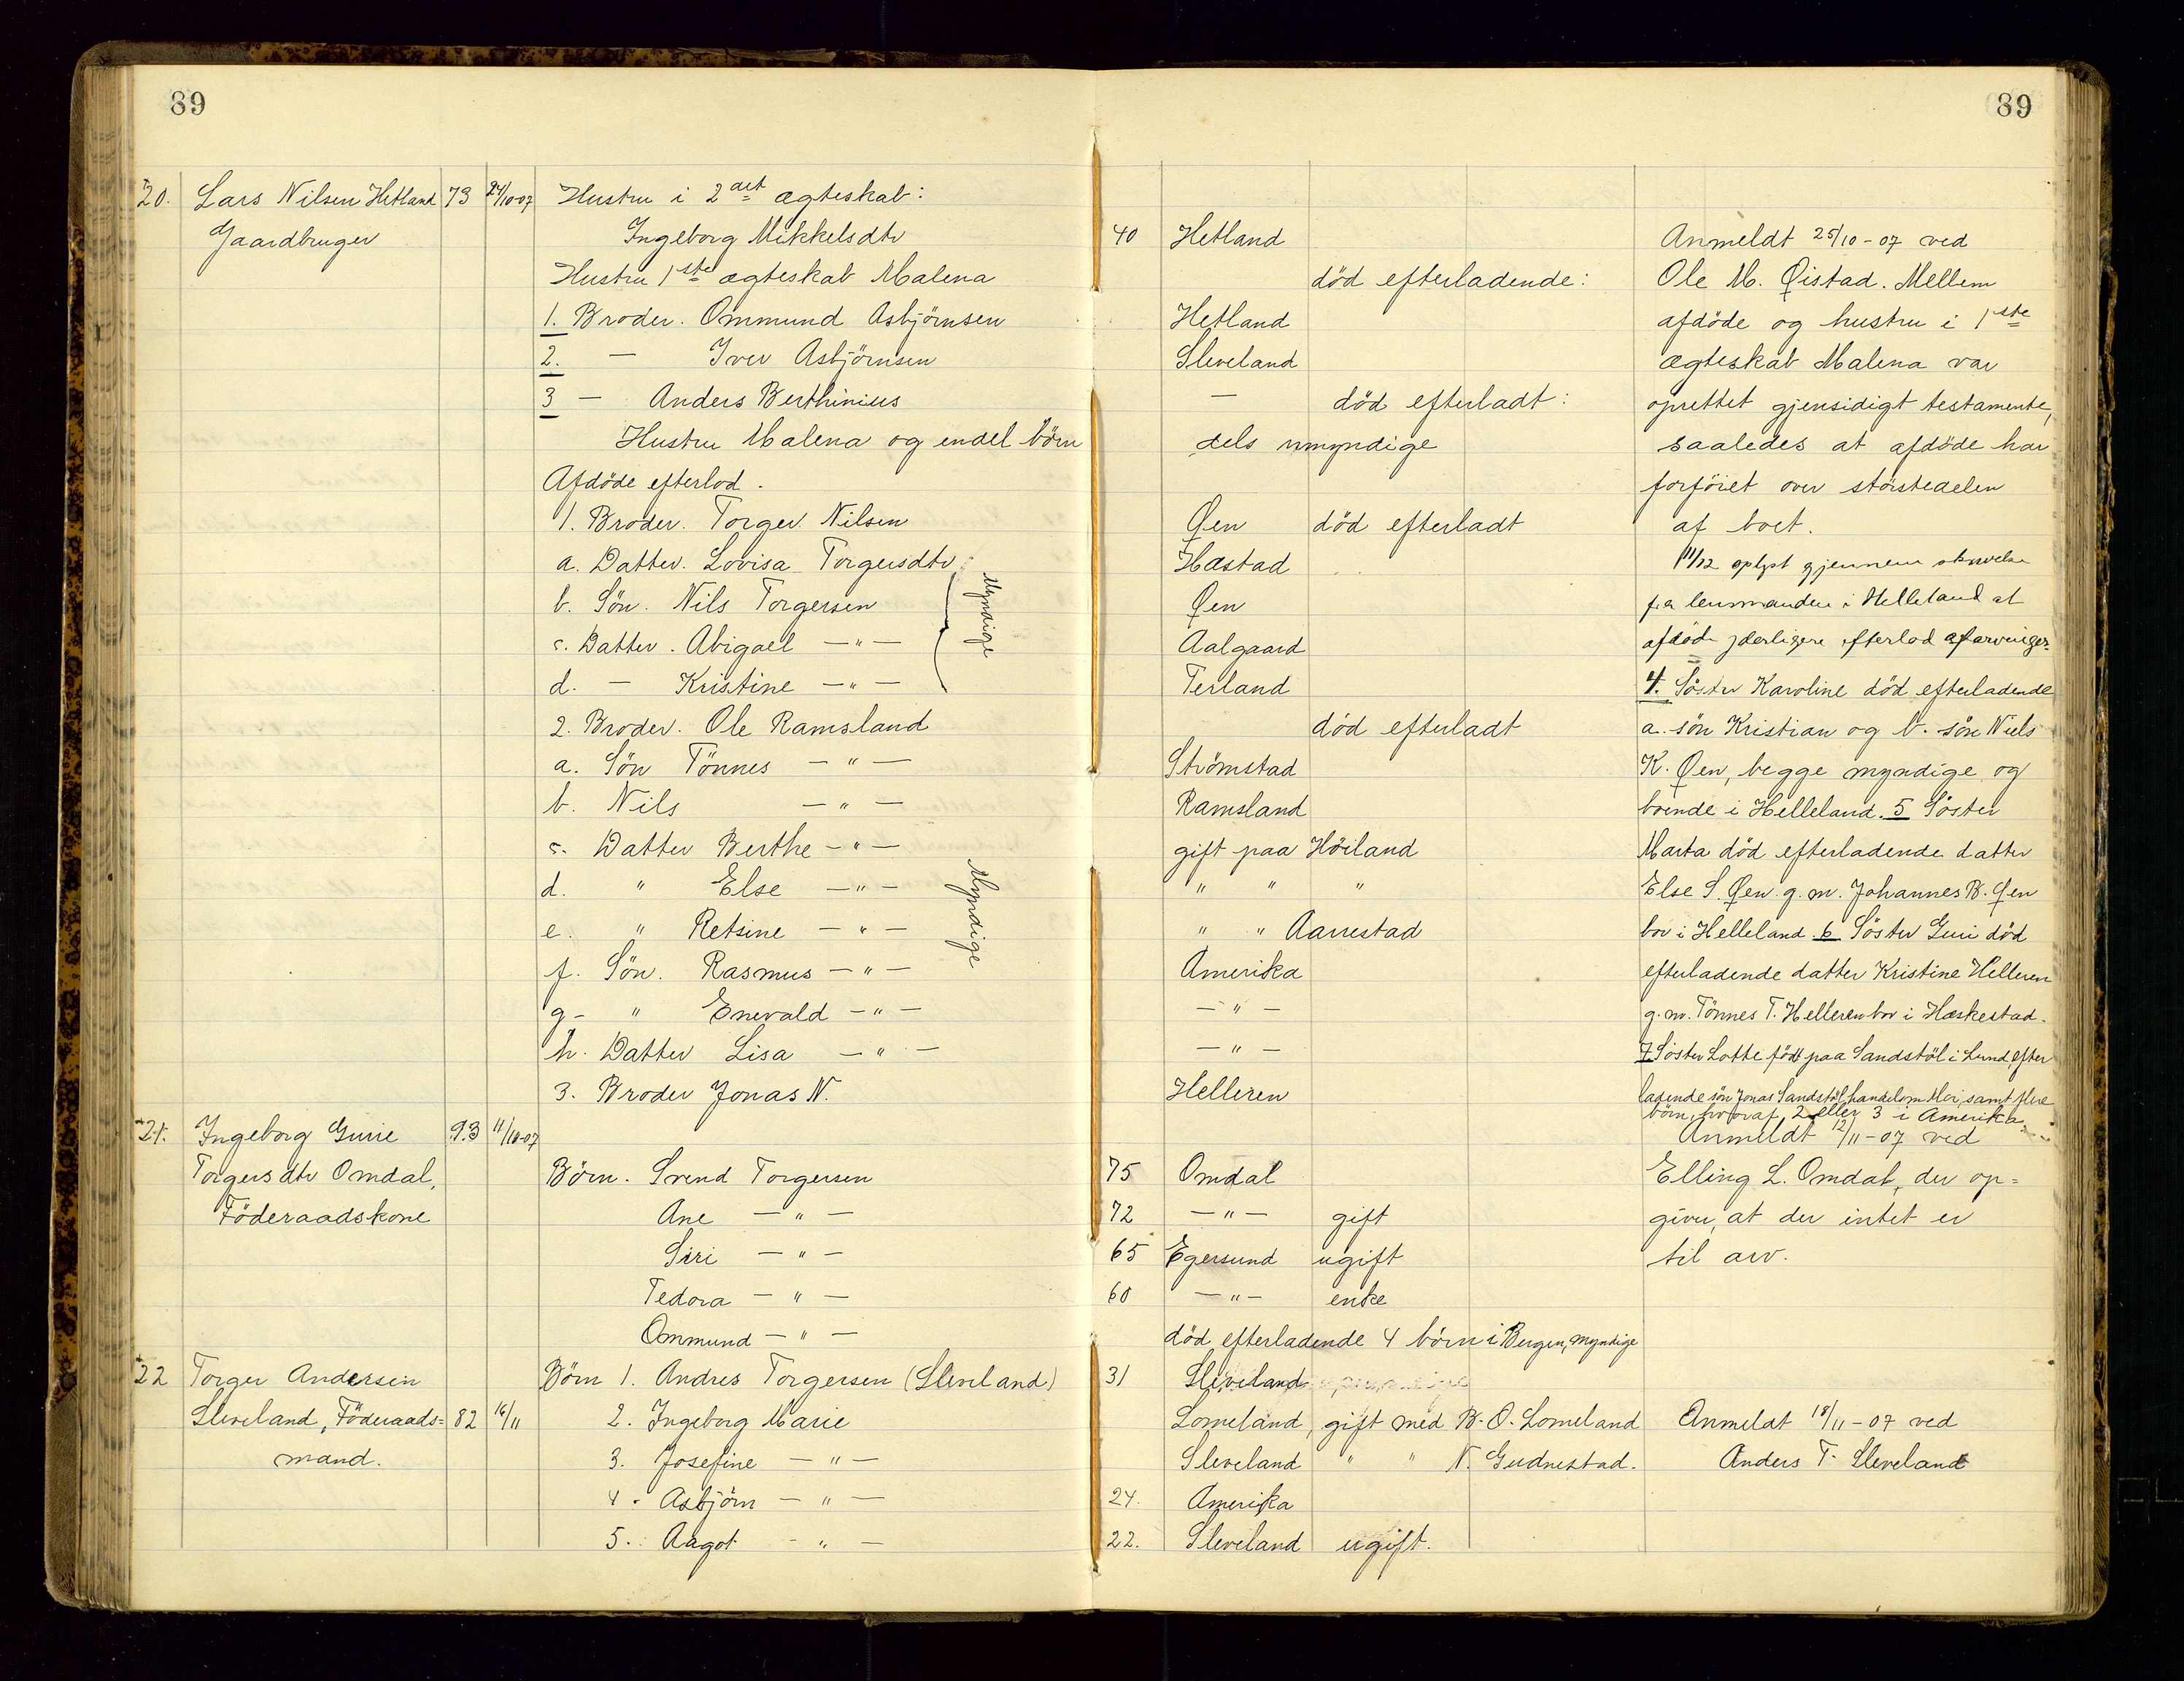 89
89
20. Lars Nilsen Hetland 73 24/10-07 Hustru i 2det ægteskab:
Gaardbruger Ingeborg Mikkelsdtr 40 Hetland Anmeldt 25/10-07 ved
Hustru 1ste ægteskab Malena død efterladende: Ole M. Øistad. Mellem
1. Broder. Ommund Asbjörnsen Hetland afdöde og hustru i 1ste
2. — Iver Asbjörnsen Sleveland ægteskab Malena var
3 — Anders Berthinius — död efterladt: oprettet gjensidigt testamente,
Hustru Malena og endel börn dels umyndige saaledes at afdöde har
Afdöde efterlod. forföiet over störstedelen
1. Broder. Torger Nilsen Øen död efterladt af boet.
a. Datter. Lovisa Torgersdtr Hæstad 11/12 oplyst gjennem skrivelse
b. Sön. Nils Torgersen Øen fra lensmanden i Helleland at
c. Datter. Abigael —"— Aalgaard afdöde yderligere efterlod af arvinger
d. — Kristine —"— Terland 4. Söster Karoline död efterladende
Myndige
2. Broder. Ole Ramsland död efterladt a. sön Kristian og b. sön Niels
a. Sön Tönnes —"— Strömstad K. Øen, begge myndige og
b. Nils —"— Ramsland boende i Helleland. 5 Söster
c. Datter Berthe —"— gift paa Höiland Marta död efterladende datter
d. " Else —"— " " " Else S. Øen g.m. Johannes B. Øen
e. " Retsine —"— " " Aarrestad bor i Helleland. 6 Söster Guri död
Myndige
f. Sön. Rasmus —"— Amerika efterladende datter Kristine Helleren
g- " Enevald —"— —"— g.m. Tönnes T. Helleren bor i Hæskestad.
h. Datter Lisa —"— —"— 7 Söster Lotte född paa Sandstöl i Lund, efter
3. Broder Jonas N. Helleren ladende sön Jonas Sandstöl, handelsm Moi, samt flere
börn, hvoraf 2 eller 3 i Amerika.
21. Ingeborg Gurie 93 11/10-07 Anmeldt 12/11-07 ved
Torgersdtr Omdal, Börn. Svend Torgersen 75 Omdal Elling L. Omdal, der op=
Föderaadskone Ane —"— 72 —"— gift giver, at der intet er
Siri —"— 65 Egersund ugift til arv.
Tedora —"— 60 —"— enke
Ommund —"— död efterladende 4 börn i Bergen, myndige
22 Torger Andersen Börn 1. Andres Torgersen (Sleveland) 31 Sleveland
Sleveland, Föderaads= 82 16/11 2. Ingeborg Marie Lomeland, gift med B. O. Lomeland Anmeldt 18/11-07 ved
mand. 3. Josefine —"— Sleveland " " N. Gudnestad. Anders T. Sleveland
4. Asbjörn —"— 24. Amerika
5. Aagot —"— 22. Sleveland ugift.